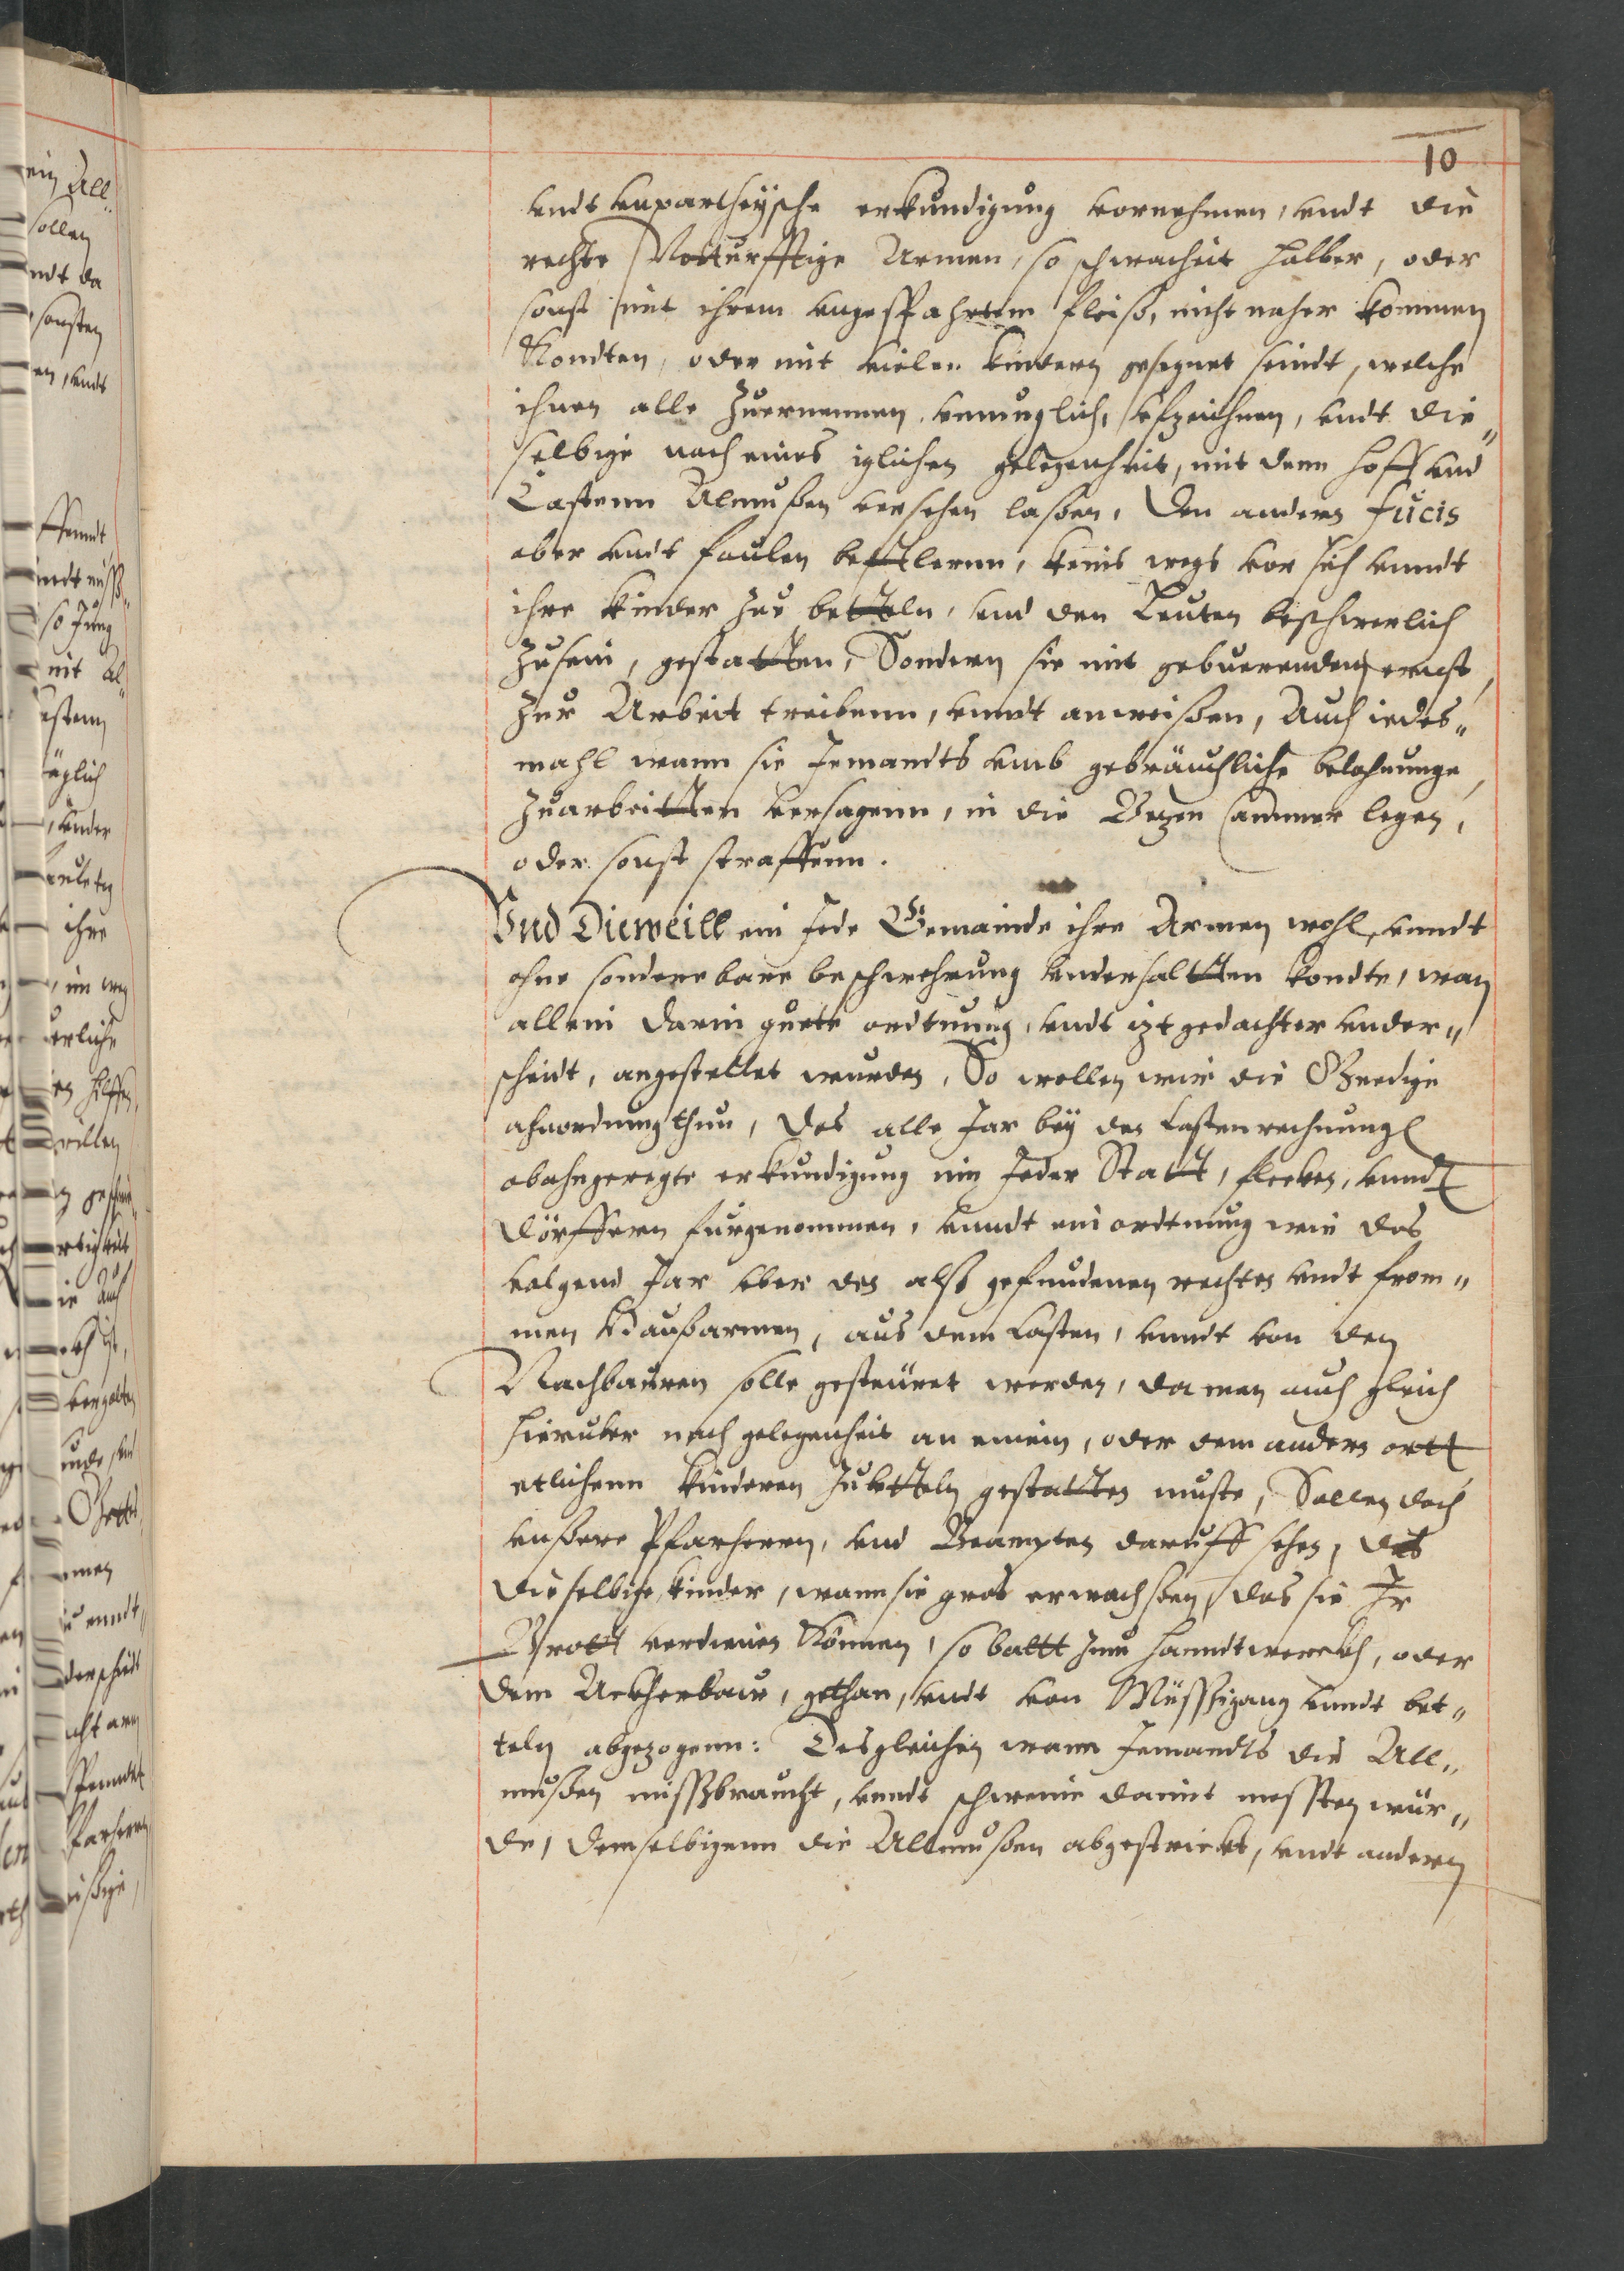 10
vndt vnpartheysche erkundigung vornehmen, vndt die
rechte Notturfftige Armen, so schwacheit halber, oder
sonst mit ihrem vngesparthem fleiß, nicht naher kommen
Kondten, oder mit vielen kindern gesegnet seindt, welche
ihnen alle Zuernennen vnmuglich, vfzeichnen, vndt die„
selbige nach eines iglichen gelegenheit, mit dem hoff vnd
Castenn Almußen versehen laßen, Den andern fucis
aber vndt faulen bettlernn, keins wegs vor sich vnndt
ihre kinder zue betteln, vnd den Leuten beschwerlich
Zusein, gestatten, Sondern sie mit gebuerenden ernst,
Zur Arbeit treibenn, vnndt anweißen, Auch iedes„
mahl wann sie Jemandts vmb gebräuchliche belohnunge,
Zuarbeitten versagenn, in die Betzen Cammer legen,
oder sonst straffenn.
Vnd Dieweill ein Jede Gemainde ihre Armen wohl, vnndt
ohne sonderbare beschwehrung vnderhaltten kondte, wan
allein darin guete ordtnung, vndt itzt gedachter vnder„
scheidt, angestellet wurden, So wollen wir die Gnedige
ahnordnung thun, Das alle Jar bey der Castenrechnung
obahngeregte erkundigung inn Jeder Statt, flecken, vnndt
Dörffern furgenommen, vnndt ein ordtnung wie das
volgend Jar vber den also gefundenen rechten vndt from„
men Haußarmen, aus dem Casten, vnndt von den
Nachbauren solle gesteüret werden, da man auch gleich
hieruber nach gelegenheit an einem, oder dem andern ortt
etlichenn kinderen Zubetteln gestatten muste, Sollen doch
vnßere Pfarherrn, vnd Beampten daruff sehen, das
dieselbige kinder, wann sie gros erwachßen, das sie Jr
Brott verdienen Können, so baltt zum handtwerckh, oder
dem Ackherbaw, gethan, vndt von Müssiggang vnndt bet„
teln abgezogenn: Desgleichen wann Jemandts die All„
mußen missbraucht, vnndt schweine damit messten wür„
de, demselbigenn die Allmußen abgestrickt, vndt andern